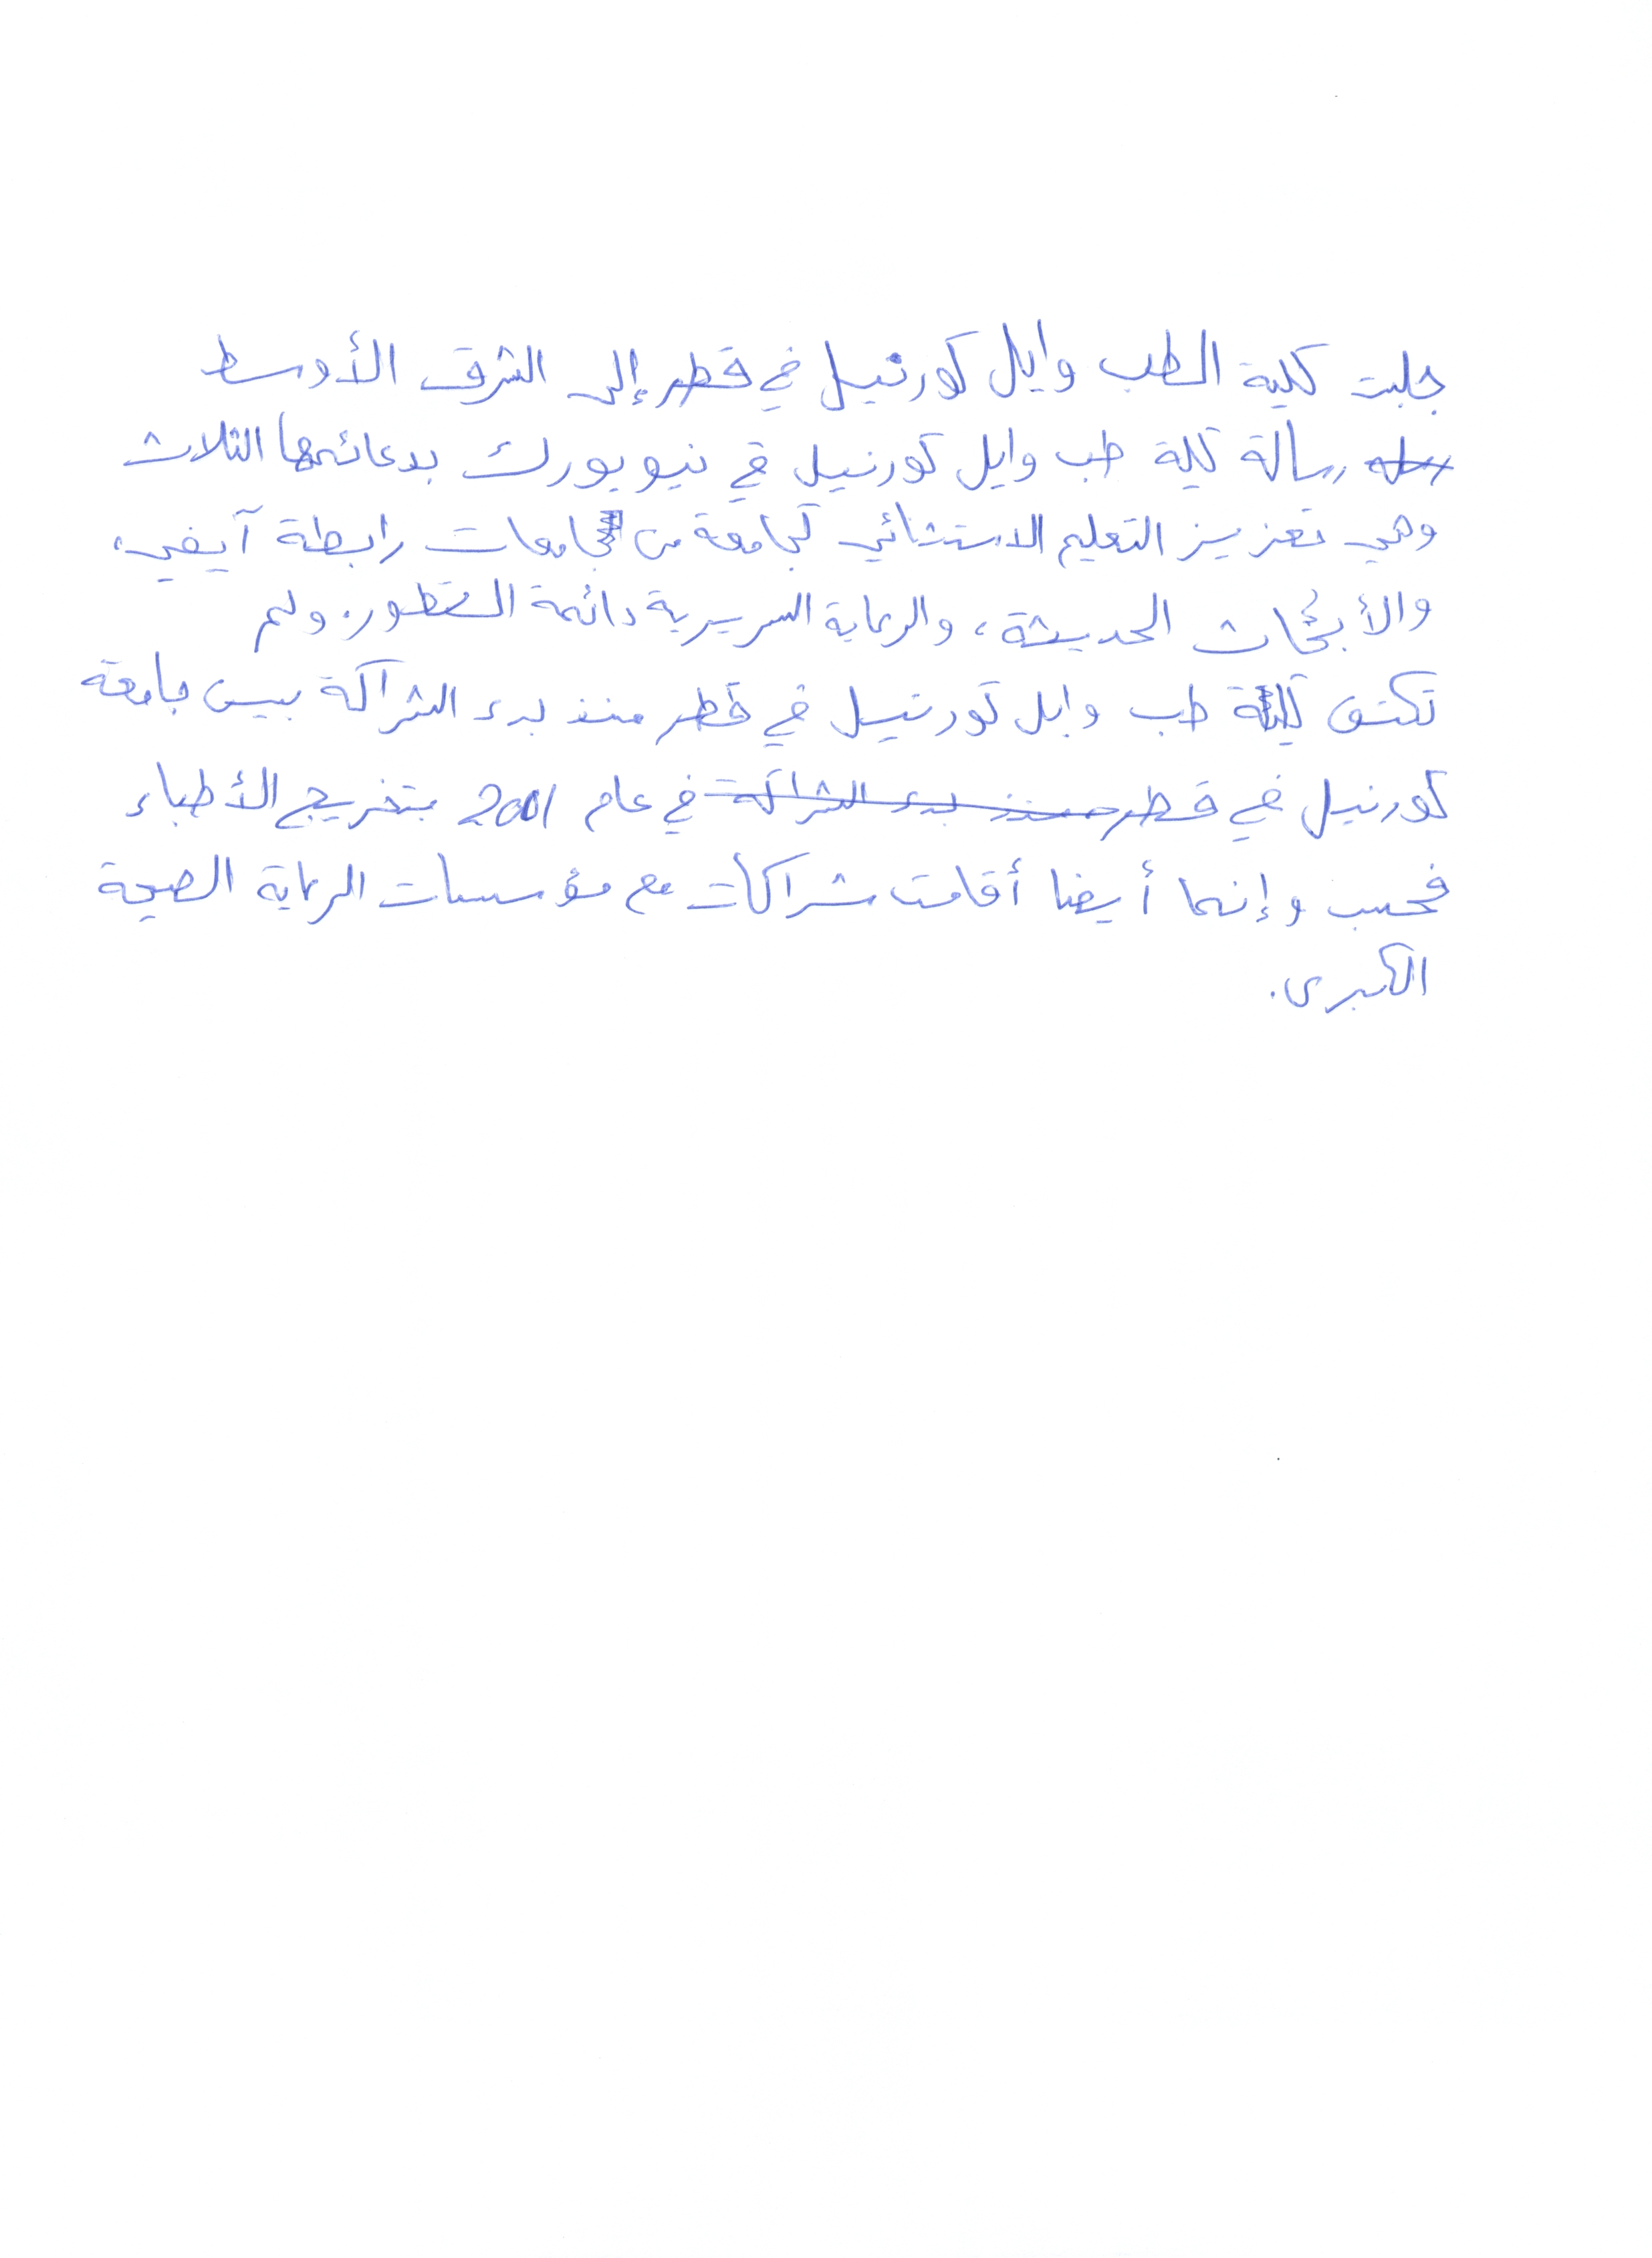 جلبت كلية الطب وايل كورنيل في قطر إلى الشرق الأوسط
رسالة كلية طب وايل كورنيل في نيويورك بدعائمها الثلاث
وهي تعزيز التعليم الاستثنائي كجامعة من جامعات رابطة آيفي،
والأبحاث الحديثة، والرعاية السريرية دائمة التطور. ولم
تكتف كلية طب وايل كورنيل في قطر منذ بدء الشراكة بين جامعة
كورنيل في قطر منذ بدء الشراكة في عام 2001 بتخريج الأطباء
فحسب وإنما أيضا أقامت شراكات مع مؤسسات الرعاية الصحية
الكبرى.